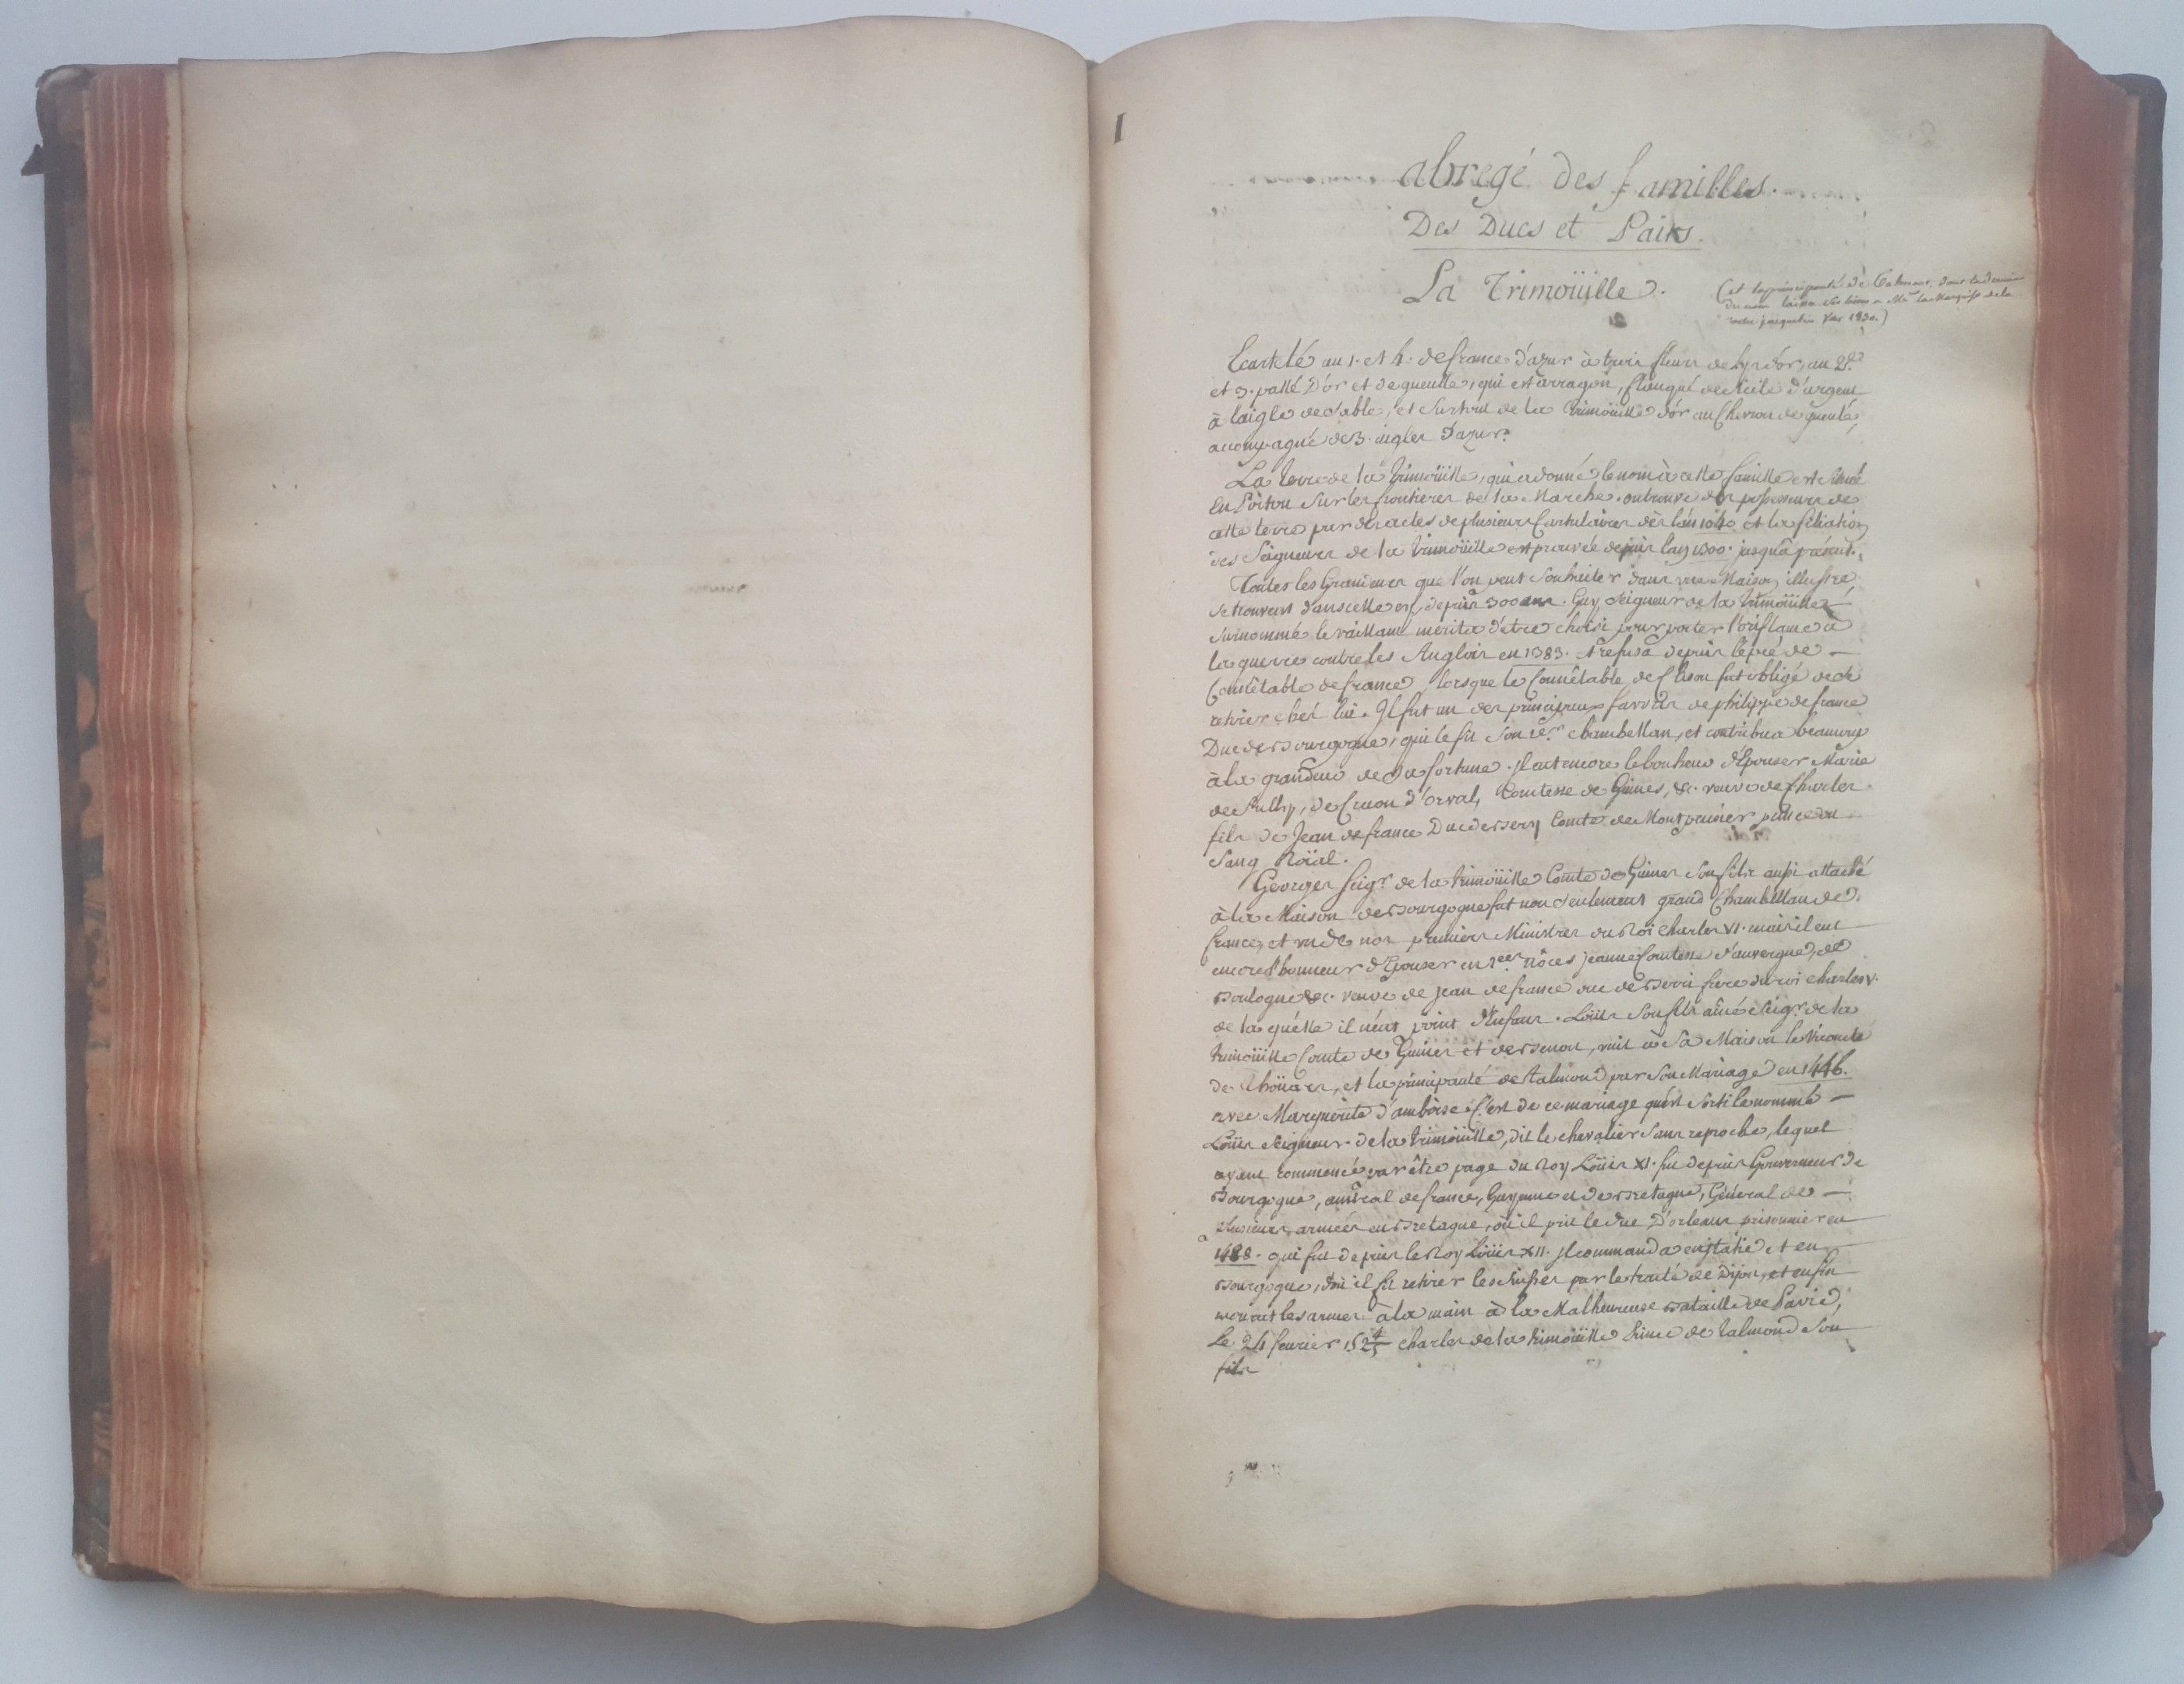 I
abregé des familles.
Des Ducs et Pairs.
La Trimoüille.
(et la principauté de Talmont, dont la derniere
du nom laissa ses biens a Me la Marquise de la
roche jaquelin vers 1830.)
Ecartelé au 1. et 4. de france d'azur à trois fleurs de lys d'or, au 2d.
et 3. pallé d'or et de gueulle, qui est arragon, flanqué de Sicile d'argent
à laigle de sable, et surtout de la trimoüille d'or au chevron de gueule,
accompagné de 3. aigles d'azur.
La terre de la trimoüille, qui a donné le nom à cette famille est située
En Poitou sur les frontieres de la Marche. on trouve des possesseurs de
cette terre par des actes de plusieurs Cartulaires dès l'an 1040 et la filiation
des Seigneurs de la trimoüille est prouvée depuis lan 1300. jusqu'à présent.
Toutes les Grandeurs que l'on peut souhaiter dans une Maison illustre,
se trouvent dans celle cy, depuis 300 ans. Guy, Seigneur de la trimoüille
surnommé le vaillant merita d'etre choisi pour porter l'oriflame à
la guerre contre les Anglois en 1383. et refusa depuis lépée de
Connétable de france, lorsque le Connêtable de Clisson fut obligé de se
retirer chés lui. Il fut un des principaux favoris de philippe de france
Duc de Bourgogne, qui le fit son 1er. chambellan, et contribua beaucoup
à la grandeur de sa fortune. il eut encore le bonheur d'Epouser Marie
de Sully, de Craon d'orval, Comtesse de Guines, &c. veuve de Charles
fils de Jean de france Duc de Berry Comte de Montpensier prince du
Sang Roïal.
Georges Seigr. de la trimoüille Comte de Guines son fils aussi attaché
à la Maison de Bourgogne fut non seulement grand Chambellan de
france, et un de nos premiers Ministres du Roi Charles VI. mais il eut
encore l'honneur d'Epouser en 1eres. nôces jeanne Comtesse d'auvergne, de
Boulogne &c. veuve de jean de france duc de Berri frere du roi Charles V.
de laquelle il n'eut point d'enfans. Loüis son fils aîné Seigr. de la
trimoüille Comte de Guines et de Benon, unit à sa Maison le Vicomté
de Thoüars, et la principauté de Talmond par son Mariage en 1446.
avec Marguerite d'amboise. C'est de ce mariage qu'est sorti le nommé
Loüis Seigneur de la trimoüille, dit le chevalier sans reproche, lequel
ayant commencé par être page du Roy Loüis XI. fut depuis Gouverneur de
Bourgogne, amiral de france, Guyenne et de Bretagne, Général de
plusieurs armées en Bretagne, où il prit le Duc d'orleans prisonnier en
1488. qui fut depuis le Roy Loüis XII. il commanda en Italie et en
Bourgogne, d'où il fit retirer les Suisses par le traité de Dijon, et enfin
mourut les armes à la main à la Malheureuse Bataille de Pavie,
Le 24 fevrier 152 4/5 Charles de la trimoüille Prince de Talmond son
fils